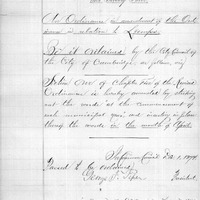 An Ordinance in amendment of the Ordi-
nance in relation to Lamps.
Be it ordained by the City Council of
the City of Cambridge as follows, viz:
Section One of Chapter five of the Revised
Ordinances is hereby amended by striking
out the words at the commencement of
each municipal year, and inserting in place
thereof the words in the month of April
In Common Council
Passed to be ordained
George F. Piper
President